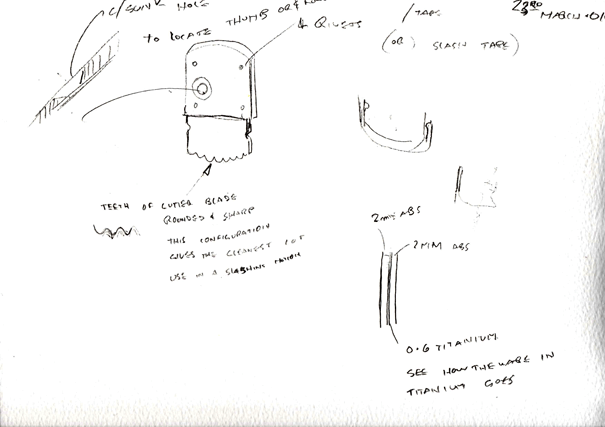 C/SUNK HOLE
TO LOCATE THUMB OR
4 RIVETS
/ TABS
23RD
MARCH
(OR) SLASH TABE)
TEETH OF CUTTER BLADE
ROUNDED & SHARP
THIS CONFIGURATION
GIVES THE CLEANEST CUT
USE IN A SLASHING MOTION
2mm ABS
2MM ABS
0.6 TITANIUM
SEE HOW THE IN
TITANIUM GOES